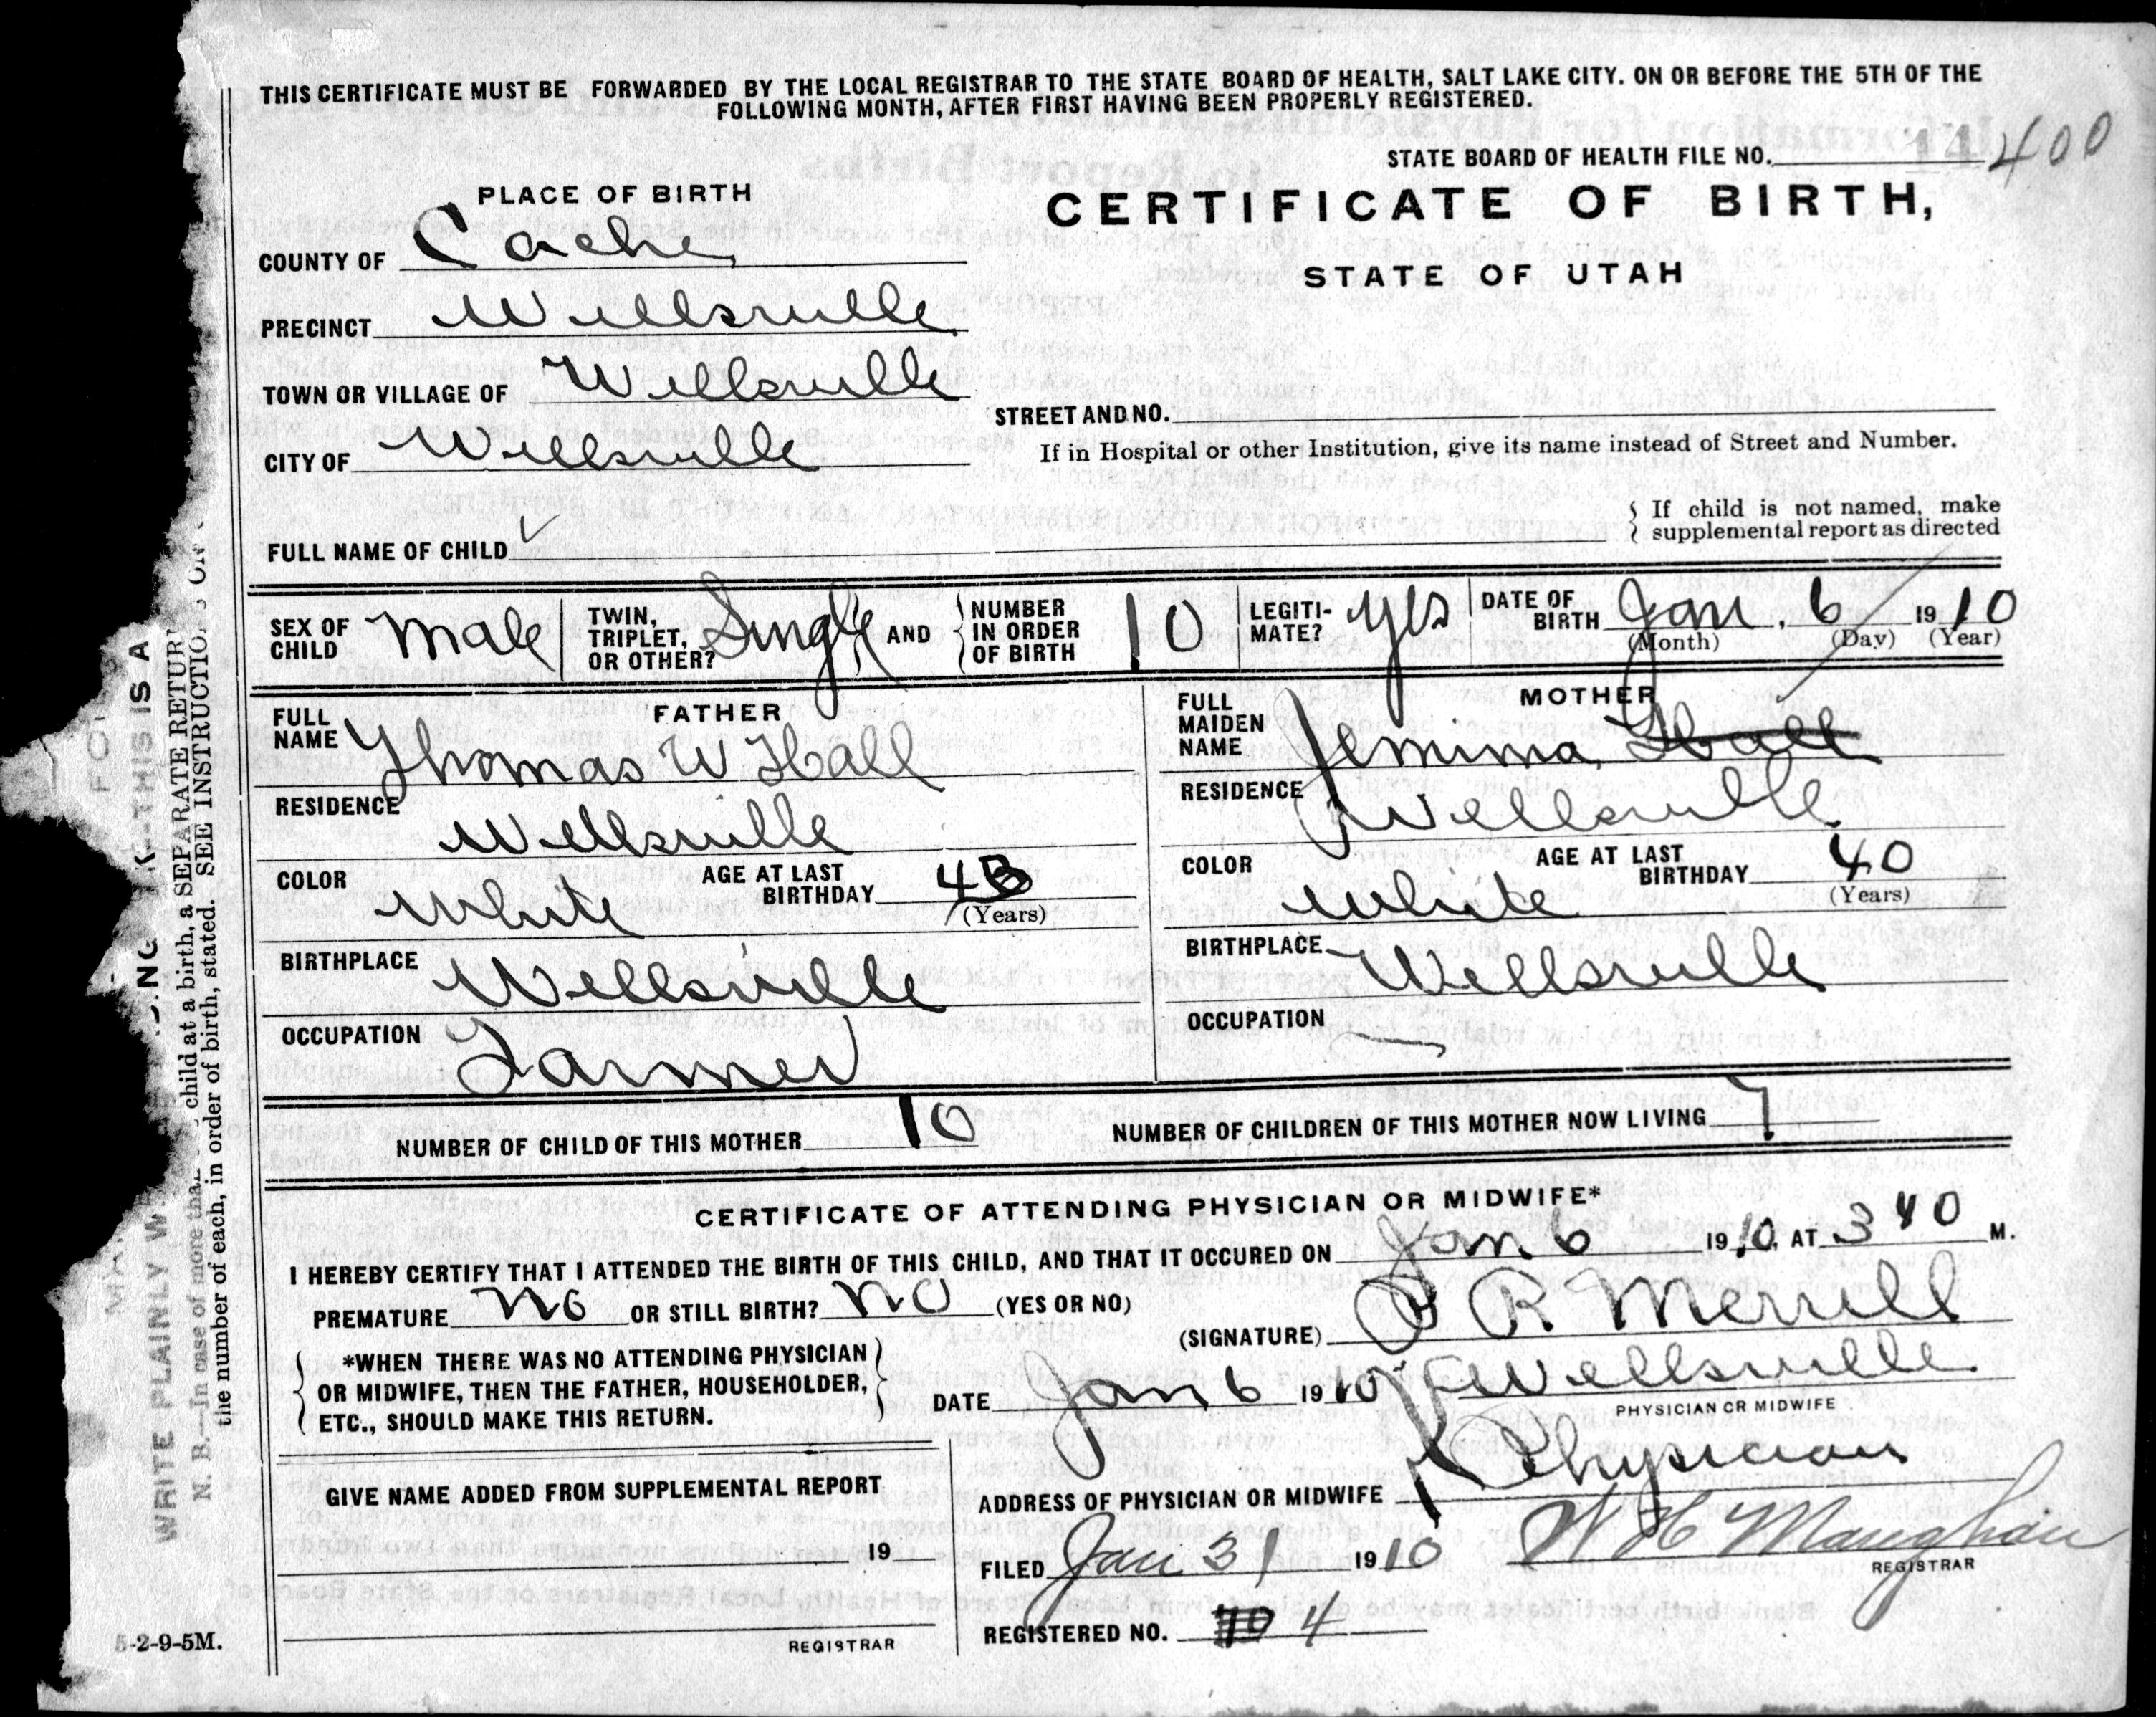 THIS CERTIFICATE MUST BE FORWARDED BY THE LOCAL REGISTRAR TO THE STATE BOARD OF HEALTH, SALT LAKE CITY. ON OR BEFORE THE 5TH OF THE
FOLLOWING MONTH, AFTER FIRST HAVING BEEN PROPERLY REGISTERED.
STATE BOARD OF HEALTH FILE NO. 14400
PLACE OF BIRTH
CERTIFICATE OF BIRTH,
STATE OF UTAH
COUNTY OF Cache
PRECINCT Wellsville
TOWN OR VILLAGE OF Wellsville
STREET AND NO.
CITY OF Wellsville
If in Hospital or other Institution, give its name instead of Street and Number.
FULL NAME OF CHILD
If child is not named, make
supplemental report as directed
SEX OF CHILD Male
TWIN, TRIPLET, OR OTHER? Single AND NUMBER IN ORDER OF BIRTH 10
LEGITIMATE? yes
DATE OF BIRTH Jan. 6 1910
(Month) (Day) (Year)
FATHER
FULL NAME Thomas W Hall
RESIDENCE Wellsville
COLOR White AGE AT LAST BIRTHDAY 43
(Years)
BIRTHPLACE Wellsville
OCCUPATION Farmer
MOTHER
FULL MAIDEN NAME Jemima Hall
RESIDENCE Wellsville
COLOR White AGE AT LAST BIRTHDAY 40
(Years)
BIRTHPLACE Wellsville
OCCUPATION
NUMBER OF CHILD OF THIS MOTHER 10
NUMBER OF CHILDREN OF THIS MOTHER NOW LIVING 7
CERTIFICATE OF ATTENDING PHYSICIAN OR MIDWIFE*
I HEREBY CERTIFY THAT I ATTENDED THE BIRTH OF THIS CHILD, AND THAT IT OCCURED ON Jan 6 1910, AT 3 40 M.
PREMATURE no OR STILL BIRTH? no (YES OR NO)
(SIGNATURE) R Merrill
*WHEN THERE WAS NO ATTENDING PHYSICIAN
OR MIDWIFE, THEN THE FATHER, HOUSEHOLDER,
ETC., SHOULD MAKE THIS RETURN.
DATE Jan 6 1910 Wellsville
PHYSICIAN OR MIDWIFE
Physician
ADDRESS OF PHYSICIAN OR MIDWIFE
GIVE NAME ADDED FROM SUPPLEMENTAL REPORT
19
REGISTRAR
FILED Jan 31 1910 W H Maughan
REGISTRAR
REGISTERED NO. 4
5-2-9-5M.
WRITE PLAINLY
THIS IS A
N. B.—In case of more than child at a birth, a SEPARATE RETURN
the number of each, in order of birth, stated. SEE INSTRUCTIO